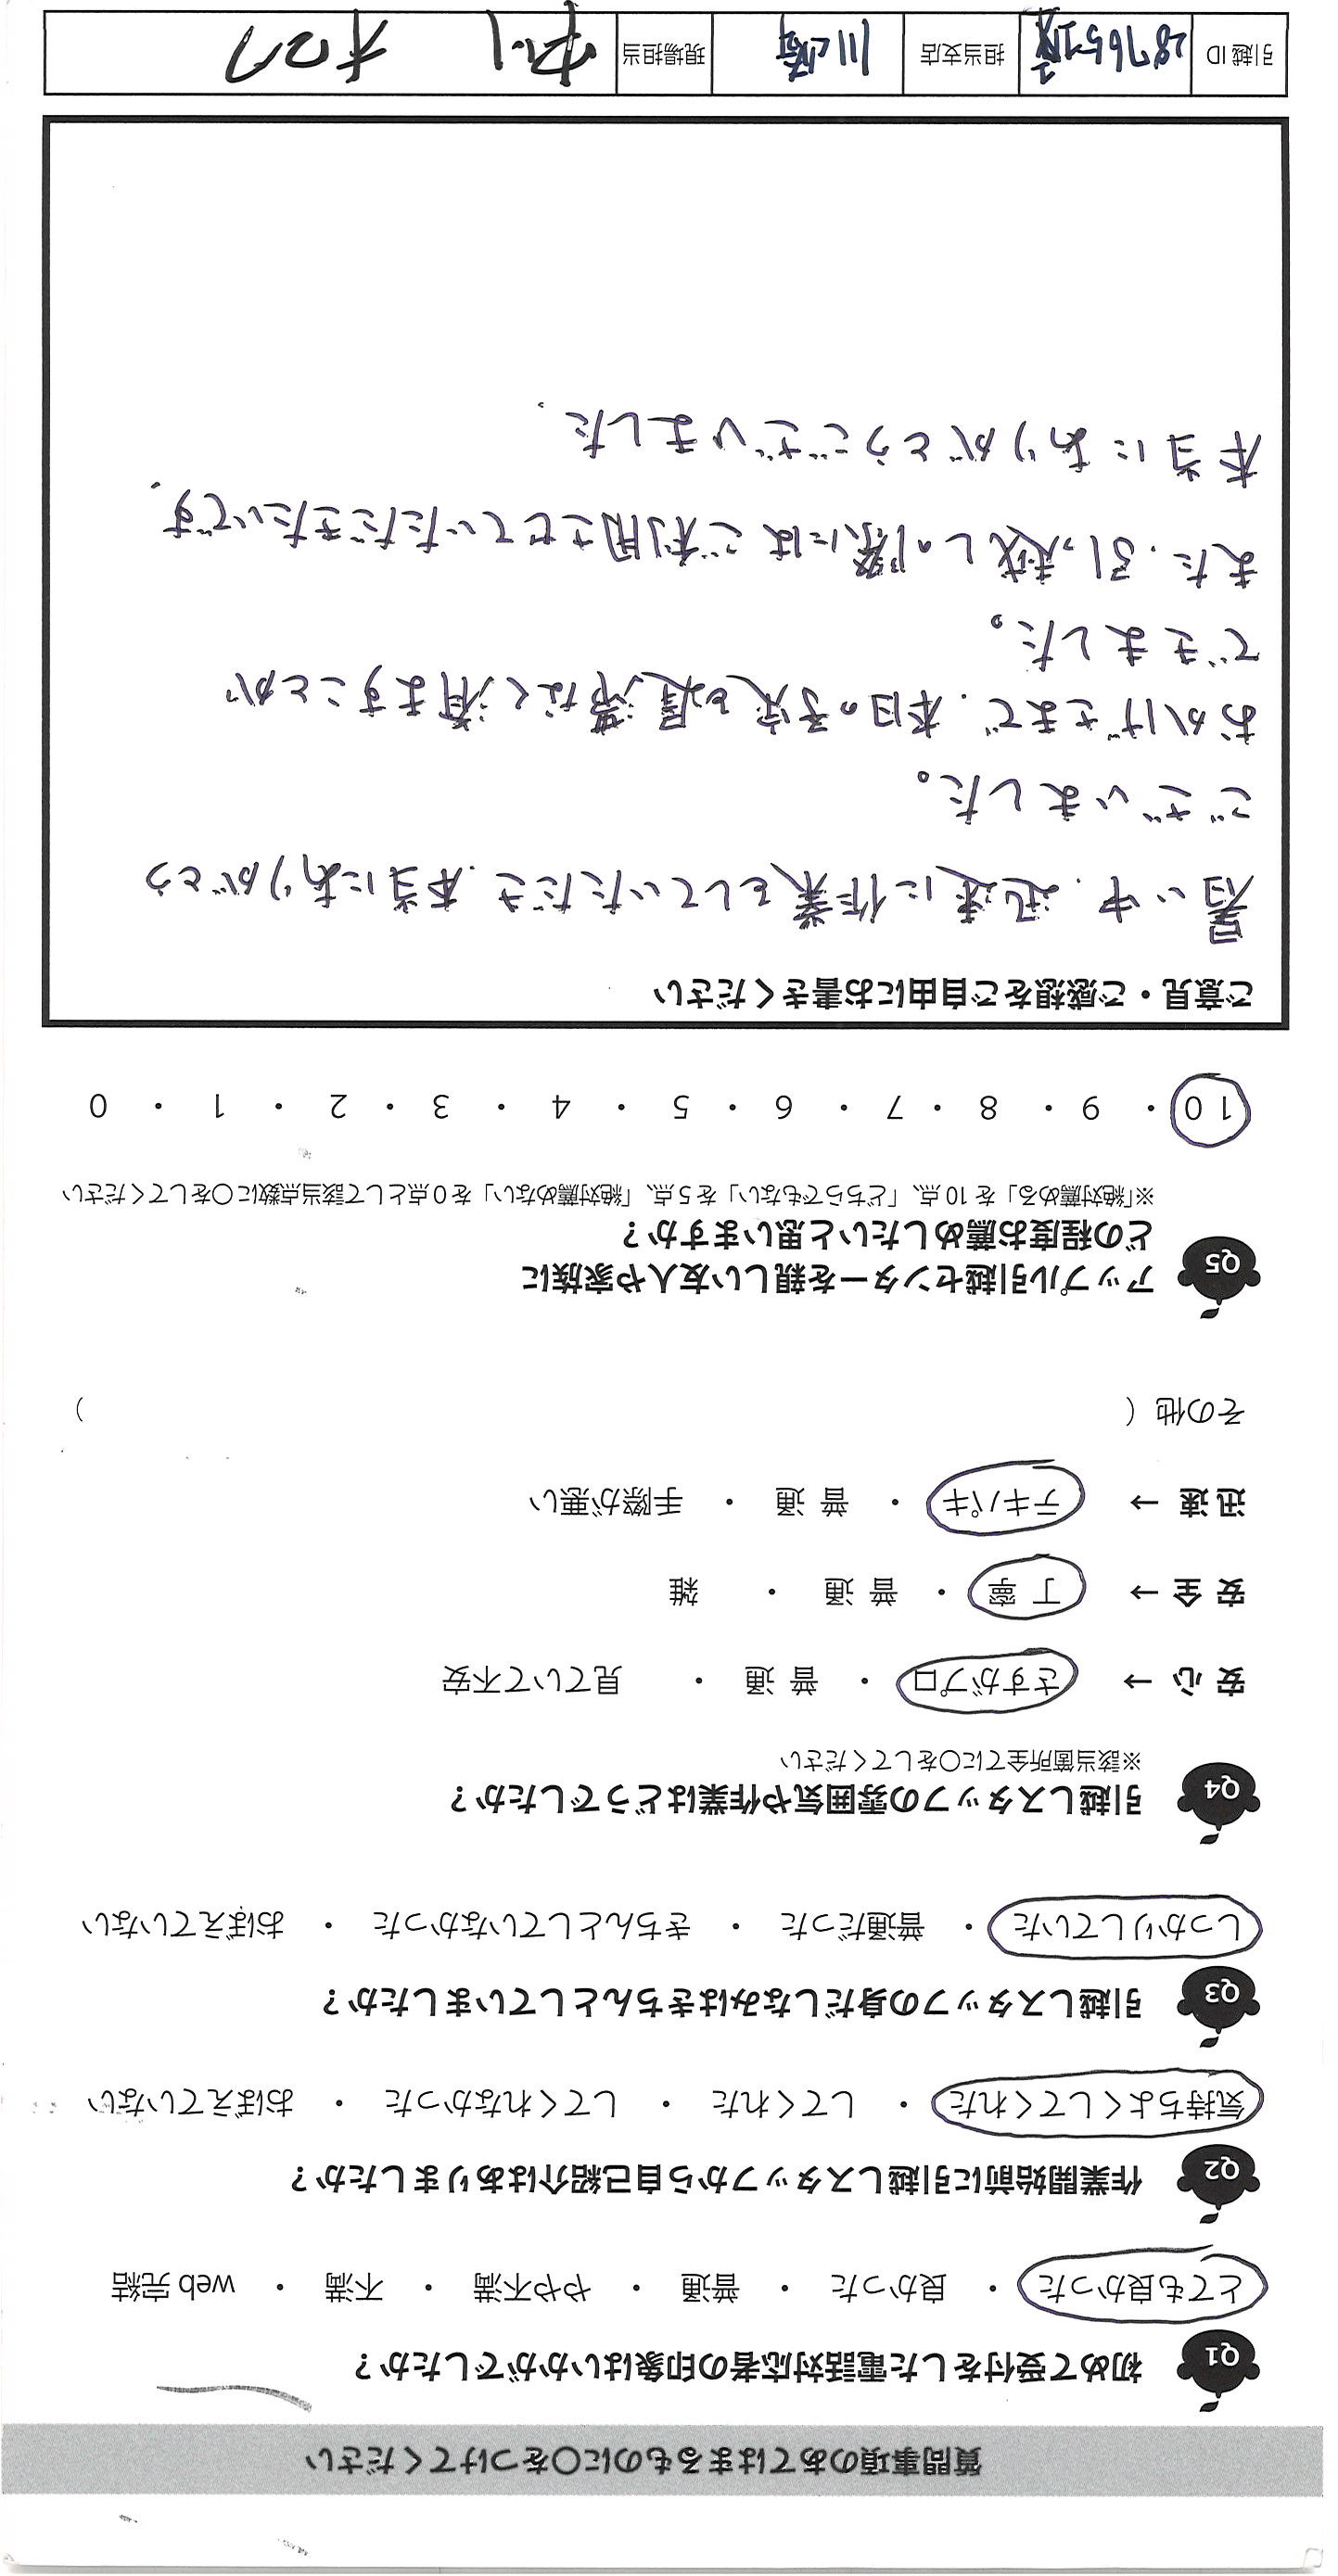 質問事項のあてはまるものに○をつけてください
Q1 初めて受付をした電話対応者の印象はいかがでしたか？
とても良かった ・ 良かった ・ 普通 ・ やや不満 ・ 不満 ・ web 完結
Q2 作業開始前に引越しスタッフから自己紹介はありましたか？
気持ちよくしてくれた ・ してくれた ・ してくれなかった ・ おぼえていない
Q3 引越しスタッフの身だしなみはきちんとしていましたか？
しっかりしていた ・ 普通だった ・ きちんとしていなかった ・ おぼえていない
Q4 引越しスタッフの雰囲気や作業はどうでしたか？
※該当箇所全てに○をしてください
安 心 → さすがプロ ・ 普 通 ・ 見ていて不安
安 全 → 丁 寧 ・ 普 通 ・ 雑
迅 速 → テキパキ ・ 普 通 ・ 手際が悪い
その他（ ）
Q5 アップル引越センターを親しい友人や家族に
どの程度お薦めしたいと思いますか？
※「絶対薦める」を 10 点、「どちらでもない」を 5 点、「絶対薦めない」を 0 点として該当点数に○をしてください
10 ・ 9 ・ 8 ・ 7 ・ 6 ・ 5 ・ 4 ・ 3 ・ 2 ・ 1 ・ 0
ご意見・ご感想をご自由にお書きください
暑い中、迅速に作業をしていただき、本当にありがとう
ございました。
おかげさまで、本日の予定も遅滞なく済ますことが
できました。
また、引っ越しの際にはご利用させていただきたいです。
本当にありがとうございました。
引越 ID 担当支店 川崎 現場担当